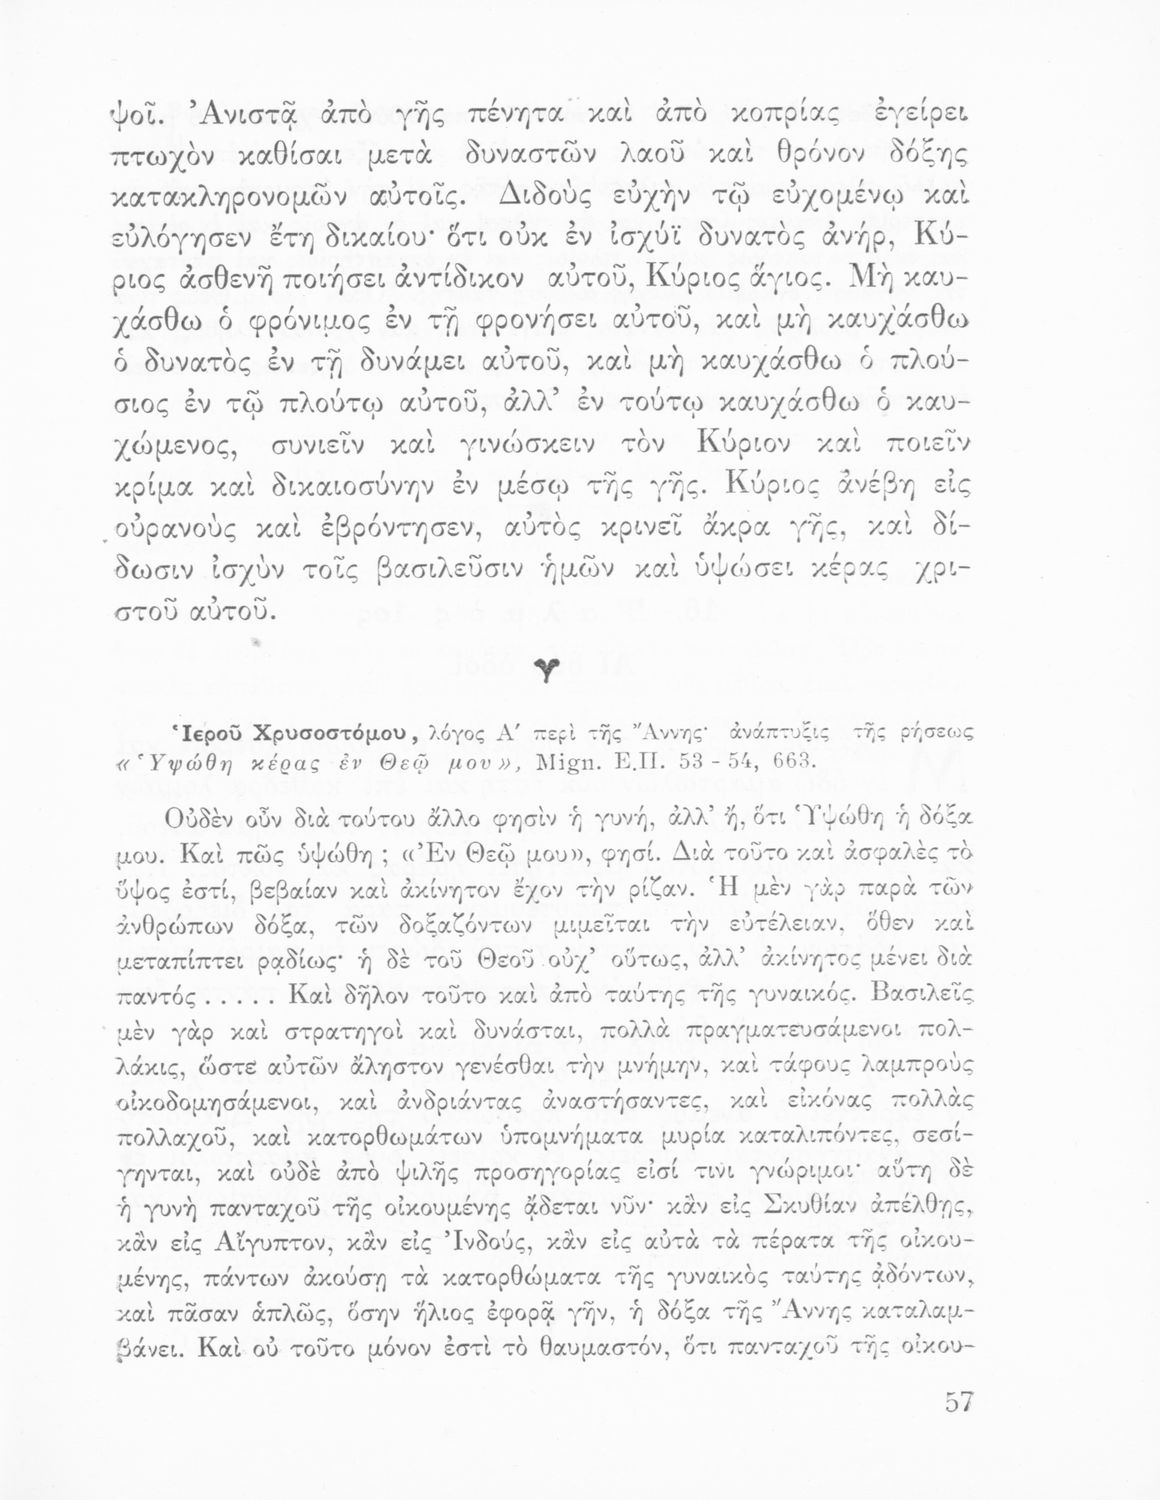 ψοῖ. Ἀνιστᾷ ἀπὸ γῆς πένητα καὶ ἀπὸ κοπρίας ἐγείρει
πτωχὸν καθίσαι μετὰ δυναστῶν λαοῦ καὶ θρόνον δόξης
κατακληρονομῶν αὐτοῖς. Διδοὺς εὐχὴν τῷ εὐχομένῳ καὶ
εὐλόγησεν ἔτη δικαίου· ὅτι οὐκ ἐν ἰσχύϊ δυνατὸς ἀνήρ, Κύ-
ριος ἀσθενῆ ποιήσει ἀντίδικον αὐτοῦ, Κύριος ἅγιος. Μὴ καυ-
χάσθω ὁ φρόνιμος ἐν τῇ φρονήσει αὐτοῦ, καὶ μὴ καυχάσθω
ὁ δυνατὸς ἐν τῇ δυνάμει αὐτοῦ, καὶ μὴ καυχάσθω ὁ πλού-
σιος ἐν τῷ πλούτῳ αὐτοῦ, ἀλλ' ἐν τούτῳ καυχάσθω ὁ καυ-
χώμενος, συνιεῖν καὶ γινώσκειν τὸν Κύριον καὶ ποιεῖν
κρίμα καὶ δικαιοσύνην ἐν μέσῳ τῆς γῆς. Κύριος ἀνέβη εἰς
οὐρανοὺς καὶ ἐβρόντησεν, αὐτὸς κρινεῖ ἄκρα γῆς, καὶ δί-
δωσιν ἰσχὺν τοῖς βασιλεῦσιν ἡμῶν καὶ ὑψώσει κέρας χρι-
στοῦ αὐτοῦ.
Ἱεροῦ Χρυσοστόμου, λόγος Α' περὶ τῆς Ἄννης· ἀνάπτυξις τῆς ρήσεως
«Ὑψώθη κέρας ἐν Θεῷ μου», Mign. Ε.Π. 53 - 54, 663.
Οὐδὲν οὖν διὰ τούτου ἄλλο φησὶν ἡ γυνή, ἀλλ' ἤ, ὅτι Ὑψώθη ἡ δόξα
μου. Καὶ πῶς ὑψώθη ; «Ἐν Θεῷ μου», φησί. Διὰ τοῦτο καὶ ἀσφαλὲς τὸ
ὕψος ἐστί, βεβαίαν καὶ ἀκίνητον ἔχον τὴν ρίζαν. Ἡ μὲν γὰρ παρὰ τῶν
ἀνθρώπων δόξα, τῶν δοξαζόντων μιμεῖται τὴν εὐτέλειαν, ὅθεν καὶ
μεταπίπτει ραδίως· ἡ δὲ τοῦ Θεοῦ οὐχ' οὕτως, ἀλλ' ἀκίνητος μένει διὰ
παντός . . . . . Καὶ δῆλον τοῦτο καὶ ἀπὸ ταύτης τῆς γυναικός. Βασιλεῖς
μὲν γὰρ καὶ στρατηγοὶ καὶ δυνάσται, πολλὰ πραγματευσάμενοι πολ-
λάκις, ὥστε αὐτῶν ἄληστον γενέσθαι τὴν μνήμην, καὶ τάφους λαμπροὺς
οἰκοδομησάμενοι, καὶ ἀνδριάντας ἀναστήσαντες, καὶ εἰκόνας πολλὰς
πολλαχοῦ, καὶ κατορθωμάτων ὑπομνήματα μυρία καταλιπόντες, σεσί-
γηνται, καὶ οὐδὲ ἀπὸ ψιλῆς προσηγορίας εἰσί τινι γνώριμοι· αὕτη δὲ
ἡ γυνὴ πανταχοῦ τῆς οἰκουμένης ᾄδεται νῦν· κἂν εἰς Σκυθίαν ἀπέλθῃς,
κἂν εἰς Αἴγυπτον, κἂν εἰς Ἰνδούς, κἂν εἰς αὐτὰ τὰ πέρατα τῆς οἰκου-
μένης, πάντων ἀκούσῃ τὰ κατορθώματα τῆς γυναικὸς ταύτης ᾀδόντων,
καὶ πᾶσαν ἁπλῶς, ὅσην ἥλιος ἐφορᾷ γῆν, ἡ δόξα τῆς Ἄννης καταλαμ-
βάνει. Καὶ οὐ τοῦτο μόνον ἐστὶ τὸ θαυμαστόν, ὅτι πανταχοῦ τῆς οἰκου-
57